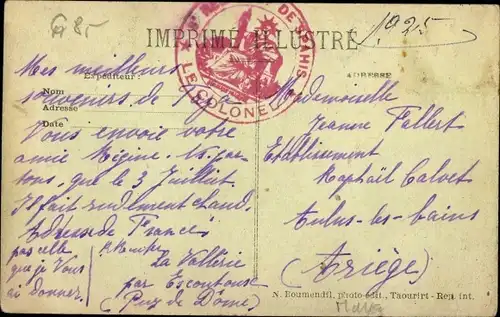 G 85
1925
IMPRIMÉ ILLUSTRÉ
RÉ DE SPAHIS
LE COLONEL
Expéditeur :
Nom
Adresse
Date
ADRESSE
Mes meilleurs
souvenirs de
Vous envoie votre
amie Régine. N. par-
tons, que le 3 Juillet.
Il fait rudement chaud.
Adresse de France
pas celle
que je Vous
ai donner.
La Vallérie
par Escoutoux
(Puy de Dôme)
Mademoiselle
Jeanne Fallert
Etablissement
Raphaël Calvet
Aulus-les-bains
(Ariège)
N. Boumendil, photo-édit., Taourirt - Rep. int.